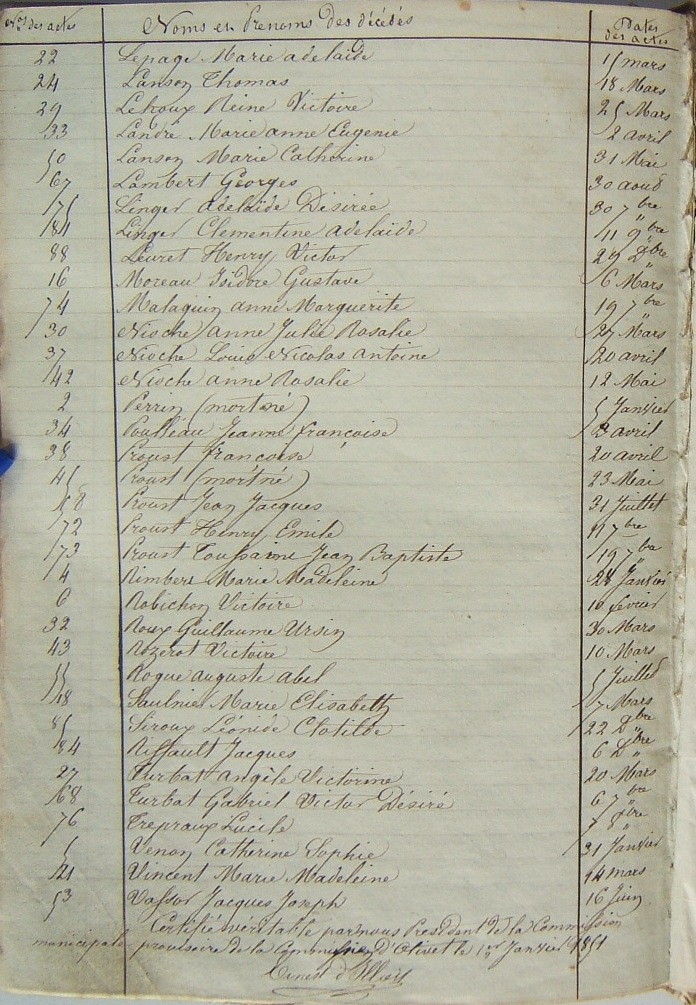 Nos des actes Noms et Prenoms des décédés Dates des actes
22 Lepage Marie adelaide 15 mars
24 Lanson Thomas 18 Mars
29 Lehoux Reine Victoire 25 Mars
33 Landré Marie anne Eugenie 2 avril
50 Lanson Marie Catherine 31 Mai
67 Lambert Georges 30 août
75 Linger adelaïde Désirée 30 7bre
81 Linger Clementine adelaïde 11 9bre
88 Leuret Henry Victor 29 Dbre
16 Moreau Isidore Gustave 6 Mars
74 Malaquin anne Marguerite 19 7bre
30 Nioche anne Julie Rosalie 27 Mars
37 Nioche Louis Nicolas antoine 20 avril
42 Nioche anne Rosalie 12 Mai
2 Perrin (mort né) 5 Janvier
34 Poulleau Jeanne françoise 3 avril
38 Proust Françoise 20 avril
45 Proust (mort né) 23 Mai
58 Proust Jean Jacques 31 Juillet
72 Proust Henry Emile 17 7bre
73 Proust Toussaint Jean Baptiste 19 7bre
4 Rimbert Marie Madeleine 28 Janvier
6 Robichon Victoire 10 fevrier
32 Roux Guillaume Ursin 30 Mars
43 Rozerot Victoire 10 Mars
55 Roque auguste abel 5 Juillet
18 Saulnier Marie Elisabeth 7 Mars
85 Siroux Léonide Clotilde 22 Dbre
84 Riffault Jacques 6 Dbre
27 Turbat angèle Victorine 20 Mars
68 Turbat Gabriel Victor Désiré 6 7bre
76 Trepraux Lucile
5 Venon Catherine Sophie 31 Janvier
21 Vincent Marie Madeleine 14 mars
53 Vassor Jacques Joseph 16 Juin
Certifié véritable par nous President de la Commission
municipale provisoire de la Commune d'Olivet le 1er Janvier 1851
Ernest d'Illiers